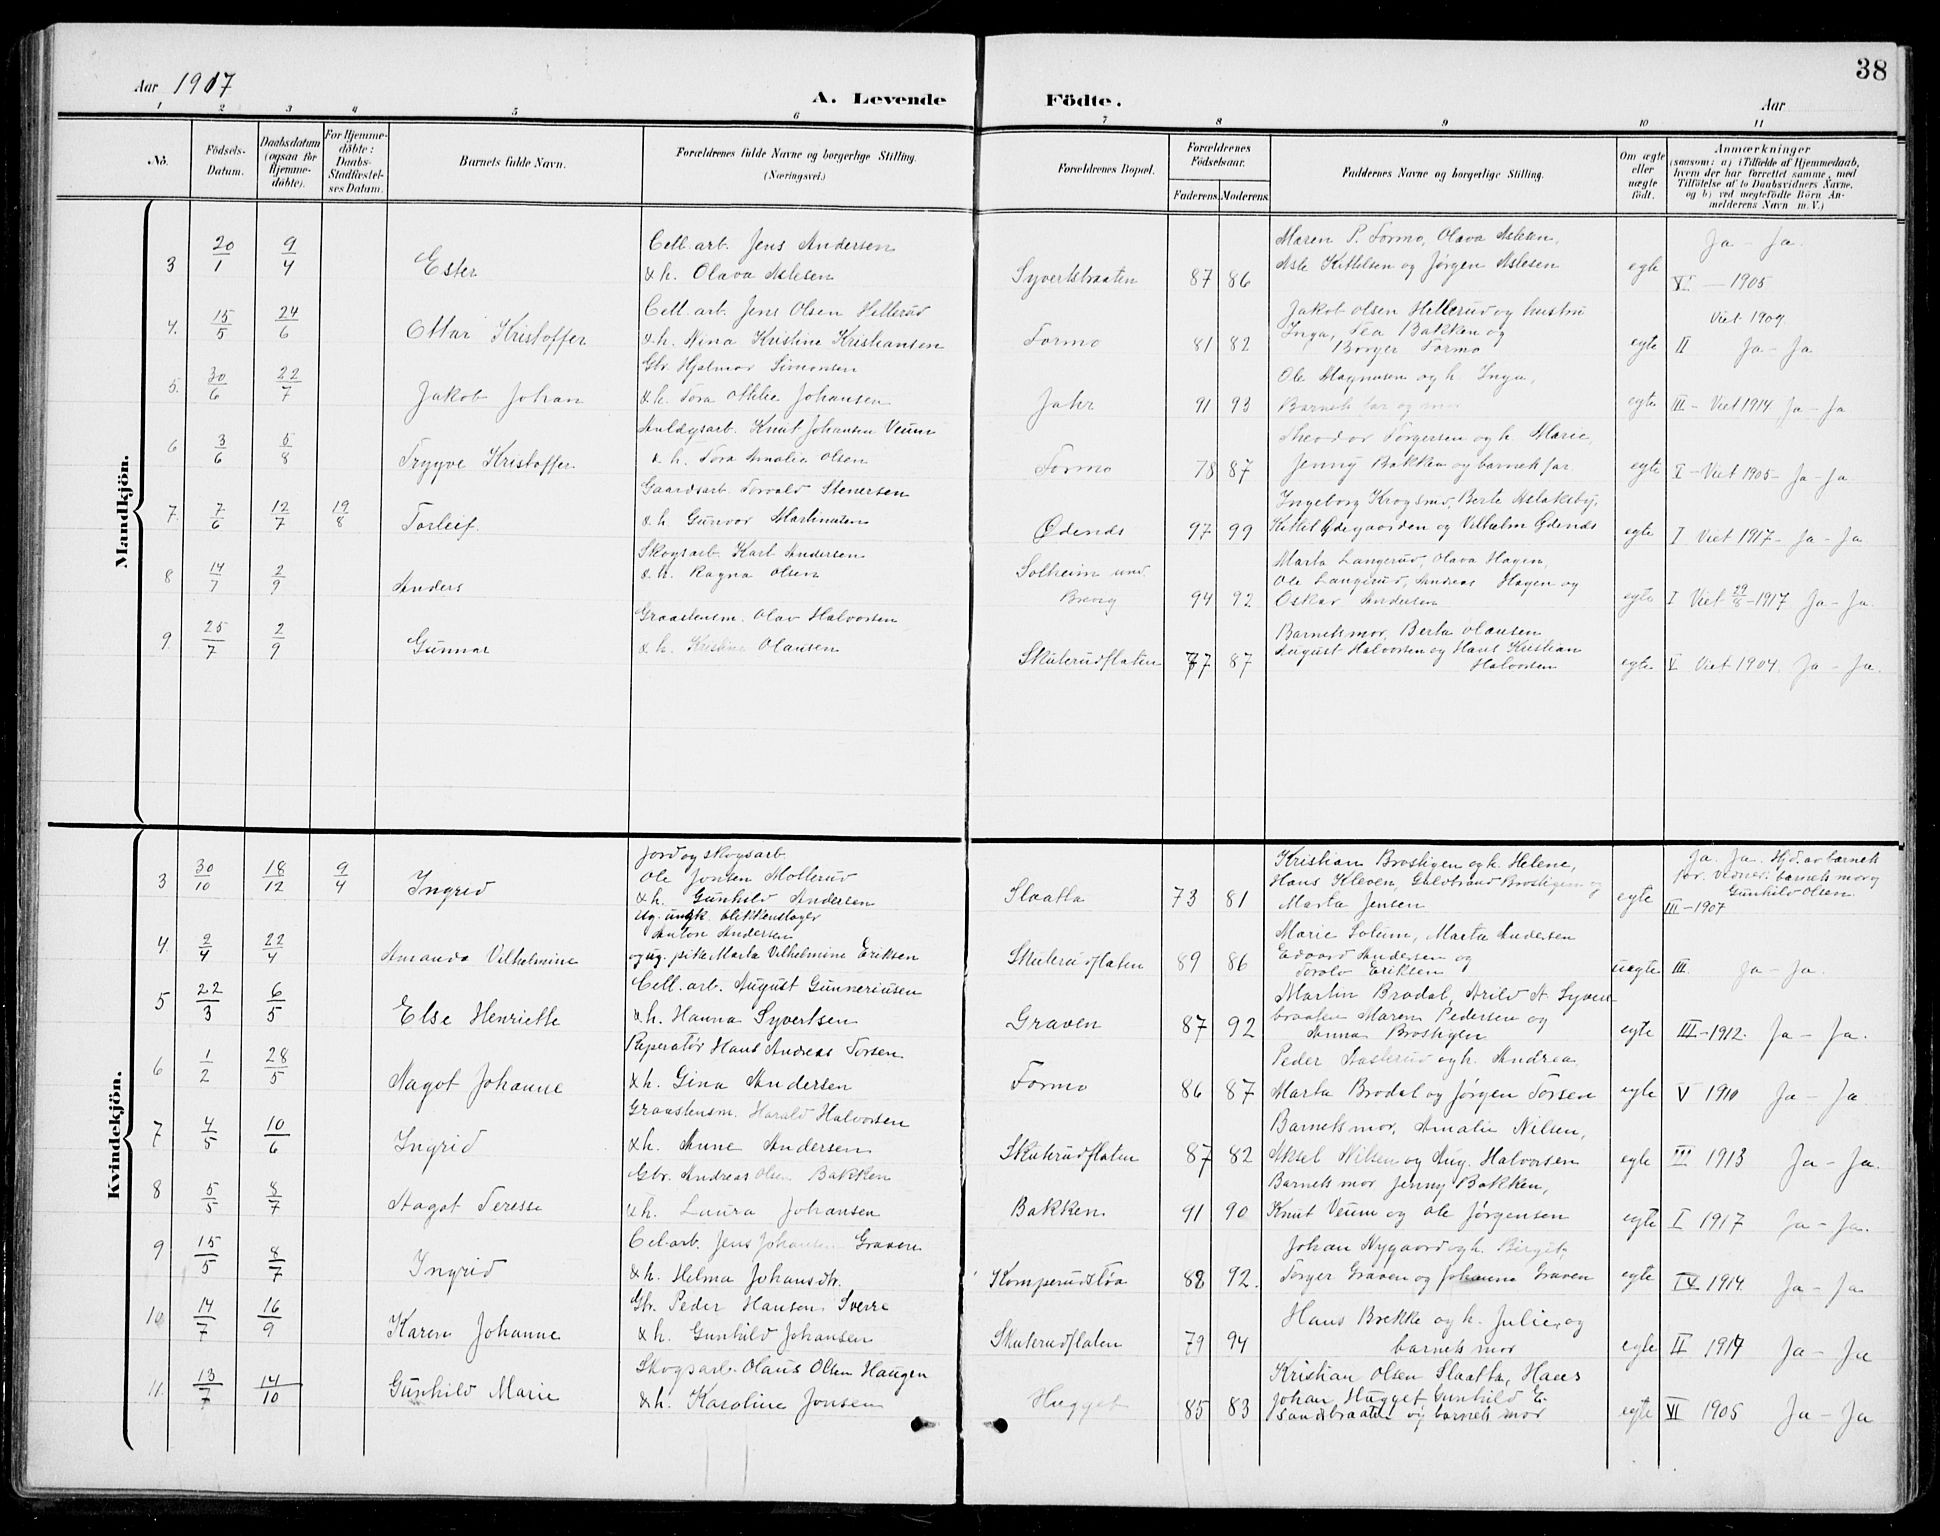 38
Aar 1917
A. Levende
Födte.
Aar
1 2 3 4 5 6 7 8 9 10 11
No.
Födsels-
Datum.
Daabsdatum
(ogsaa for
Hjemme-
döbte).
For Hjemme-
döbte:
Daabs-
Stadfæstel-
ses Datum.
Barnets fulde Navn.
Forældrenes fulde Navne og borgerlige Stilling.
(Næringsvei.)
Forældrenes Bopæl.
Forældrenes
Födselsaar.
Faderens. Moderens.
Faddernes Navne og borgerlige Stilling.
Om ægte
eller
uægte
födt.
Anmærkninger
(saasom: a) i Tilfælde af Hjemmedaab,
hvem der har forrettet samme, med
Tilföielse af to Daabsvidners Navne,
og b) ved uægtefödte Börn An-
melderens Navn m. V.)
Mandkjön.
3 20/1 9/4 Ester
Cell. arb. Jens Andersen
& h. Olava Aslesen
Syvertsbraaten 87 86
Maren P. Formo, Olava Aslesen,
Asle Kittelsen og Jørgen Aslesen
egte
Ja - Ja.
VI - 1905
4. 15/5 24/6 Ottar Kristoffer
Cell. arb. Jens Olsen Hellerud
& h. Nina Kristine Kristiansen
Formo 81 82
Jakob Olsen Hellerud og hustru
Inga, Tea Bakken og
Borger Formo
egte
Viet 1909.
II Ja - Ja
5. 30/6 22/7 Jakob Johan
Gbr. Hjalmar Simonsen
& h. Tora Othlie Johansen
Jahr 91 93
Ole Magnusen og h. Inga,
Barnets far og mor
egte III - Viet 1914. Ja - Ja
6 3/6 5/8 Trygve Kristoffer
Anlægsarb. Knut Johansen Veum
& h. Tora Amalia Olsen
Formo 78 87
Theodor Torgersen og h. Marie,
Jenny Bakken og barnets far.
egte I - Viet 1905 - Ja - Ja
7. 7/6 12/7 19/8 Torleif.
Gaardsarb. Torvald Stenersen
& h. Gunvor Martinsen
Ødends 97 99
Ingeborg Krogsmo, Berte Aslaksby,
Kittil Ødegaarden og Vilhelm Ødends
egte I Viet 1917 - Ja - Ja
8 14/7 2/9 Anders
Skogsarb. Karl Andersen
& h. Ragna Olsen
Solheim und.
Brevig 94 92
Marta Langerud, Olava Hagen,
Ole Langerud, Andreas Hagen og
Oskar Andersen
egte I Viet 29/8 - 1917 Ja - Ja.
9. 25/7 2/9 Gunnar
Graastensm. Olav Halvorsen
& h. Kristine Olausen
Skuterudflaten 77 87
Barnets mor, Berta Olausen
August Halvorsen og Hans Kristian
Halvorsen
egte V Viet 1904. Ja - Ja.
Kvindekjön.
3 30/10 18/12 9/4 Ingrid
Jord og skogsarb.
Ole Jonsen Mollerud
& h. Gunhild Andersen
Slaatta 73 81
Kristian Brostigen og h. Helene,
Hans Kleven, Guldbrand Brostigen og
Marta Jensen
egte
Ja. Ja. Hjd. av barnets
far. Vidner: barnets mor og
Gunhild Olsen
III - 1907
4 9/4 22/4 Amanda Vilhelmine
Ug. ungk. blikkenslager
Anton Andersen
og ug. pike Marta Vilhelmine Eriksen
Skuterudflaten 89 86
Marie Solum, Marta Andersen
Edvard Andersen og
Torald Eriksen
uegte III. Ja - Ja.
5 22/3 6/5 Else Henriette
Cell. arb. August Gunneriusen
& h. Hanna Syvertsen
Graven 87 92
Martin Brodal, Arild A. Syverts-
braaten Maren Pedersen og
Anna Brostigen
egte III - 1912. Ja - Ja.
6 1/2 28/5 Aagot Johanne
Reperatør Hans Andreas Torsen
& h. Gina Andersen
Formo 86 87
Peder Aasterud og h. Andrea
Marta Brodal og Jørgen Torsen
egte V 1910 Ja - Ja
7 4/5 10/6 Ingrid
Graastensm. Harald Halvorsen
& h. Anne Andersen
Skuterudflaten 87 82
Barnets mor, Amalie Nilsen,
Aksel Nilsen og Aug. Halvorsen
egte III 1913 Ja - Ja.
8 5/5 8/7 Aagot Terese
Gbr. Andreas Olsen Bakken
& h. Laura Johansen
Bakken 91 90
Barnets mor Jenny Bakken,
Knut Veum og Ole Jørgensen
egte I 1917 Ja - Ja.
9 15/5 8/7 Ingrid
Cel. arb. Jens Johansen Graven
& h. Helma Johansdtr.
Komperudstøa 88 92.
Johan Nygaard og h. Birgit,
Torger Graven og Johanna Graven
egte IV 1914. Ja - Ja
10 14/7 16/9 Karen Johanne
Gbr. Peder Hansen Sverre
& h. Gunhild Johansen
Skuterudflaten 79 94
Hans Brekke og h. Julie, og
barnets mor
egte II 1914 Ja - Ja
11. 13/7 14/10 Gunhild Marie
Skogsarb. Olaus Olsen Haugen
& h. Karoline Jonsen
Hugget 85 83
Kristian Olsen Slaatta, Hans
Johan Hugget, Gunhild E-
sandsbraaten og barnets mor
egte VI 1905 Ja - Ja